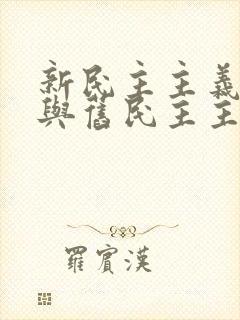 新民主主義
與舊民主主
羅賓漢